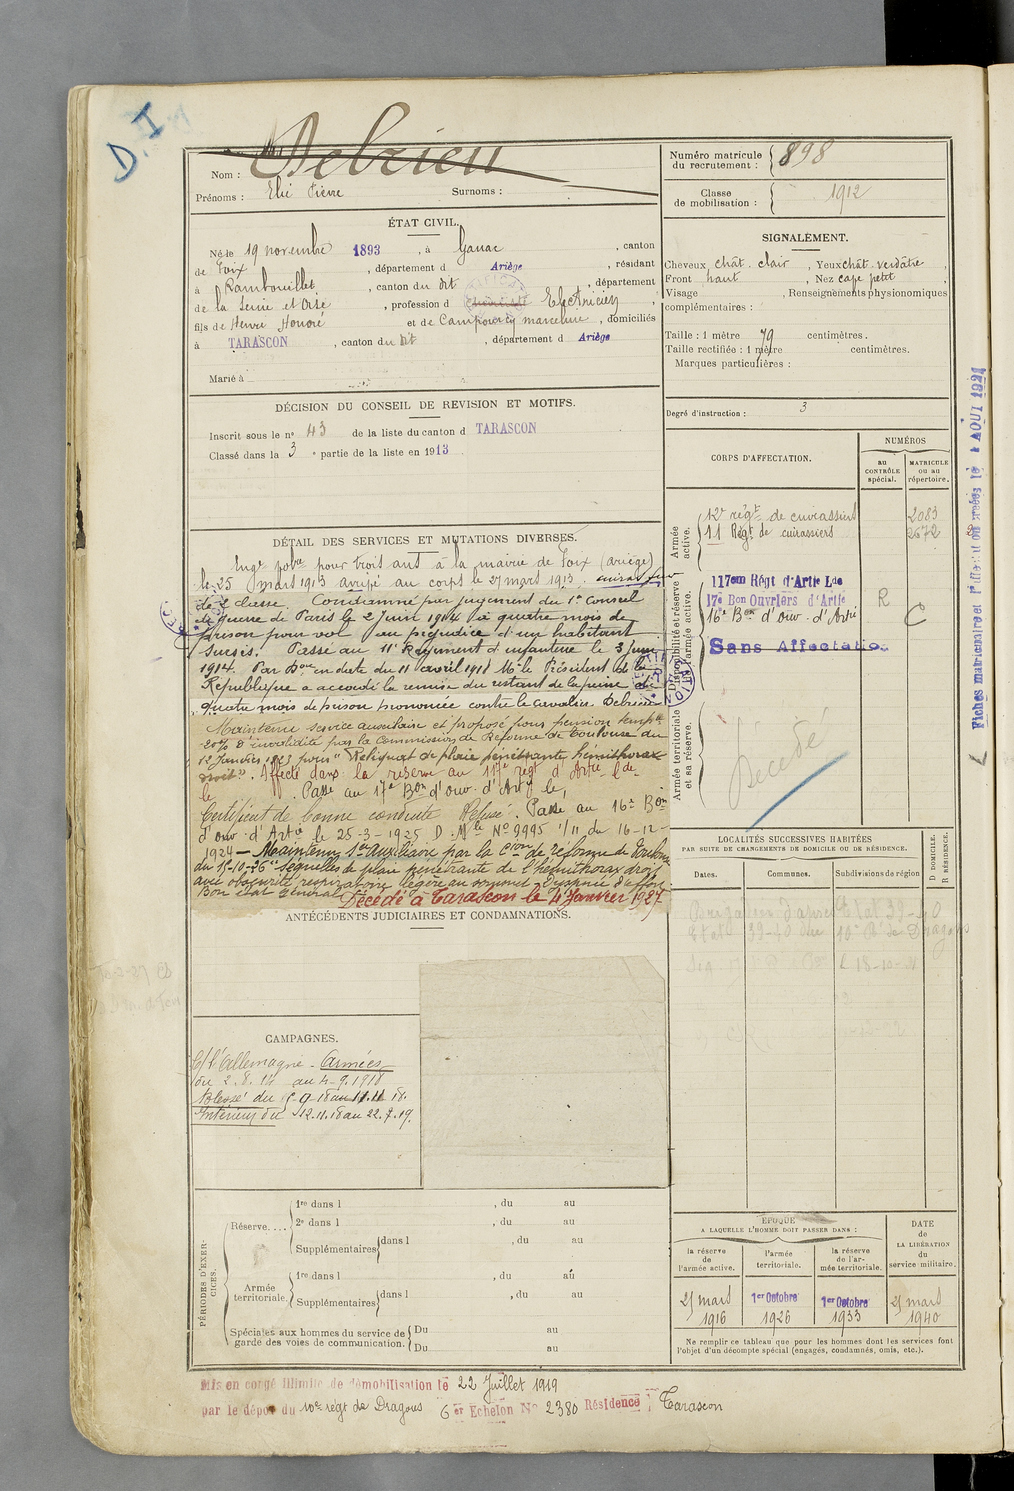 D. I
Nom : Debrieu
Prénoms : Elie Pierre Surnoms :
Numéro matricule du recrutement : 898
Classe de mobilisation : 1912
ÉTAT CIVIL.
Né le 19 novembre 1893, à Ganac, canton
de Foix, département d Ariège, résidant
à Rambouillet, canton du dit, département
de la Seine et Oise, profession d Electricien,
fils de Henri Honoré et de Campourcy marceline, domiciliés
à TARASCON, canton du dit, département d Ariège
Marié à
SIGNALEMENT.
Cheveux chât. clair, Yeux chât. verdâtre,
Front haut, Nez cape petit,
Visage , Renseignements physionomiques
complémentaires :
Taille : 1 mètre 79 centimètres.
Taille rectifiée : 1 mètre centimètres.
Marques particulières :
Degré d'instruction : 3
DÉCISION DU CONSEIL DE REVISION ET MOTIFS.
Inscrit sous le n° 43 de la liste du canton d TARASCON
Classé dans la 3e partie de la liste en 1913
CORPS D'AFFECTATION.
NUMÉROS
AU CONTRÔLE spécial.
MATRICULE OU AU répertoire.
Armée active.
12e régt de cuirassiers 2083
11 Régt de cuirassiers 2672
Disponibilité et réserve de l'armée active.
117em Régt d'Artie Lde
17e Bon Ouvriers d'Artie R
16e Bon d'ouv. d'Artie C
Sans Affectation
Armée territoriale et sa réserve.
Décédé
DÉTAIL DES SERVICES ET MUTATIONS DIVERSES.
Engt pour trois ans à la mairie de Foix (Ariège)
le 25 mars 1913 arrivé au corps le 27 mars 1913. cuirassier
de 2e classe. Condamné par jugement du 1er Conseil
de guerre de Paris le 2 juin 1914 à quatre mois de
prison pour vol au préjudice d'un habitant
Sursis. Passé au 11e Régiment d'infanterie le 3 juin
1914. Par Don en date du 11 avril 1918 Mr le Président de la
République a accordé la remise du restant de la peine de
quatre mois de prison prononcée contre le cavalier Debrieu
Maintenu service auxiliaire et proposé pour pension tempre
20% D'invalidité par la Commission de Réforme de Toulouse du
12 Janvier 1923 pour "Reliquat de plaie pénétrante hémithorax
droit". Affecté dans la réserve au 117e régt d'Artie Lde
le . Passé au 17e Bon d'ouv. d'Artie le,
Certificat de bonne conduite Refusé. Passé au 16e Bon
d'ouv. d'Artie le 25-3-1925 D. Mle N° 9995 1/11 du 16-12-
1924 – Maintenu Ser auxiliaire par la Cion de réforme de Toulouse
du 15-10-26 "séquelles de plaie pénétrante de l'hémithorax droit
avec obscurité respiratoire légère au sommet Dyspnée d'effort
Bon état général
Décédé à Tarascon le 4 Janvier 1927
LOCALITÉS SUCCESSIVES HABITÉES
PAR SUITE DE CHANGEMENTS DE DOMICILE OU DE RÉSIDENCE.
Dates. Communes. Subdivisions de région
D DOMICILE. R RÉSIDENCE.
ANTÉCÉDENTS JUDICIAIRES ET CONDAMNATIONS.
CAMPAGNES.
C/ l'Allemagne - Armées
du 2.8.14 au 4-9.1918
Blessé du 5-9-18 au 11.11.18.
Intérieur du 12.11.18 au 22.7.19.
PÉRIODES D'EXERCICES.
Réserve....
1re dans l , du au
2e dans l , du au
Supplémentaires dans l , du au
Armée territoriale.
1re dans l , du au
Supplémentaires dans l , du au
Spéciales aux hommes du service de garde des voies de communication.
Du au
Du au
ÉPOQUE
A LAQUELLE L'HOMME DOIT PASSER DANS :
la réserve de l'armée active.
l'armée territoriale.
la réserve de l'armée territoriale.
DATE de LA LIBÉRATION du service militaire.
25 mars 1916
1er Octobre 1926
1er Octobre 1933
25 mars 1940
Ne remplir ce tableau que pour les hommes dont les services font
l'objet d'un décompte spécial (engagés, condamnés, omis, etc.).
Mis en congé illimité de démobilisation le 22 Juillet 1919
par le dépôt du 10e régt de Dragons 6er Echelon N° 2380 Résidence Tarascon